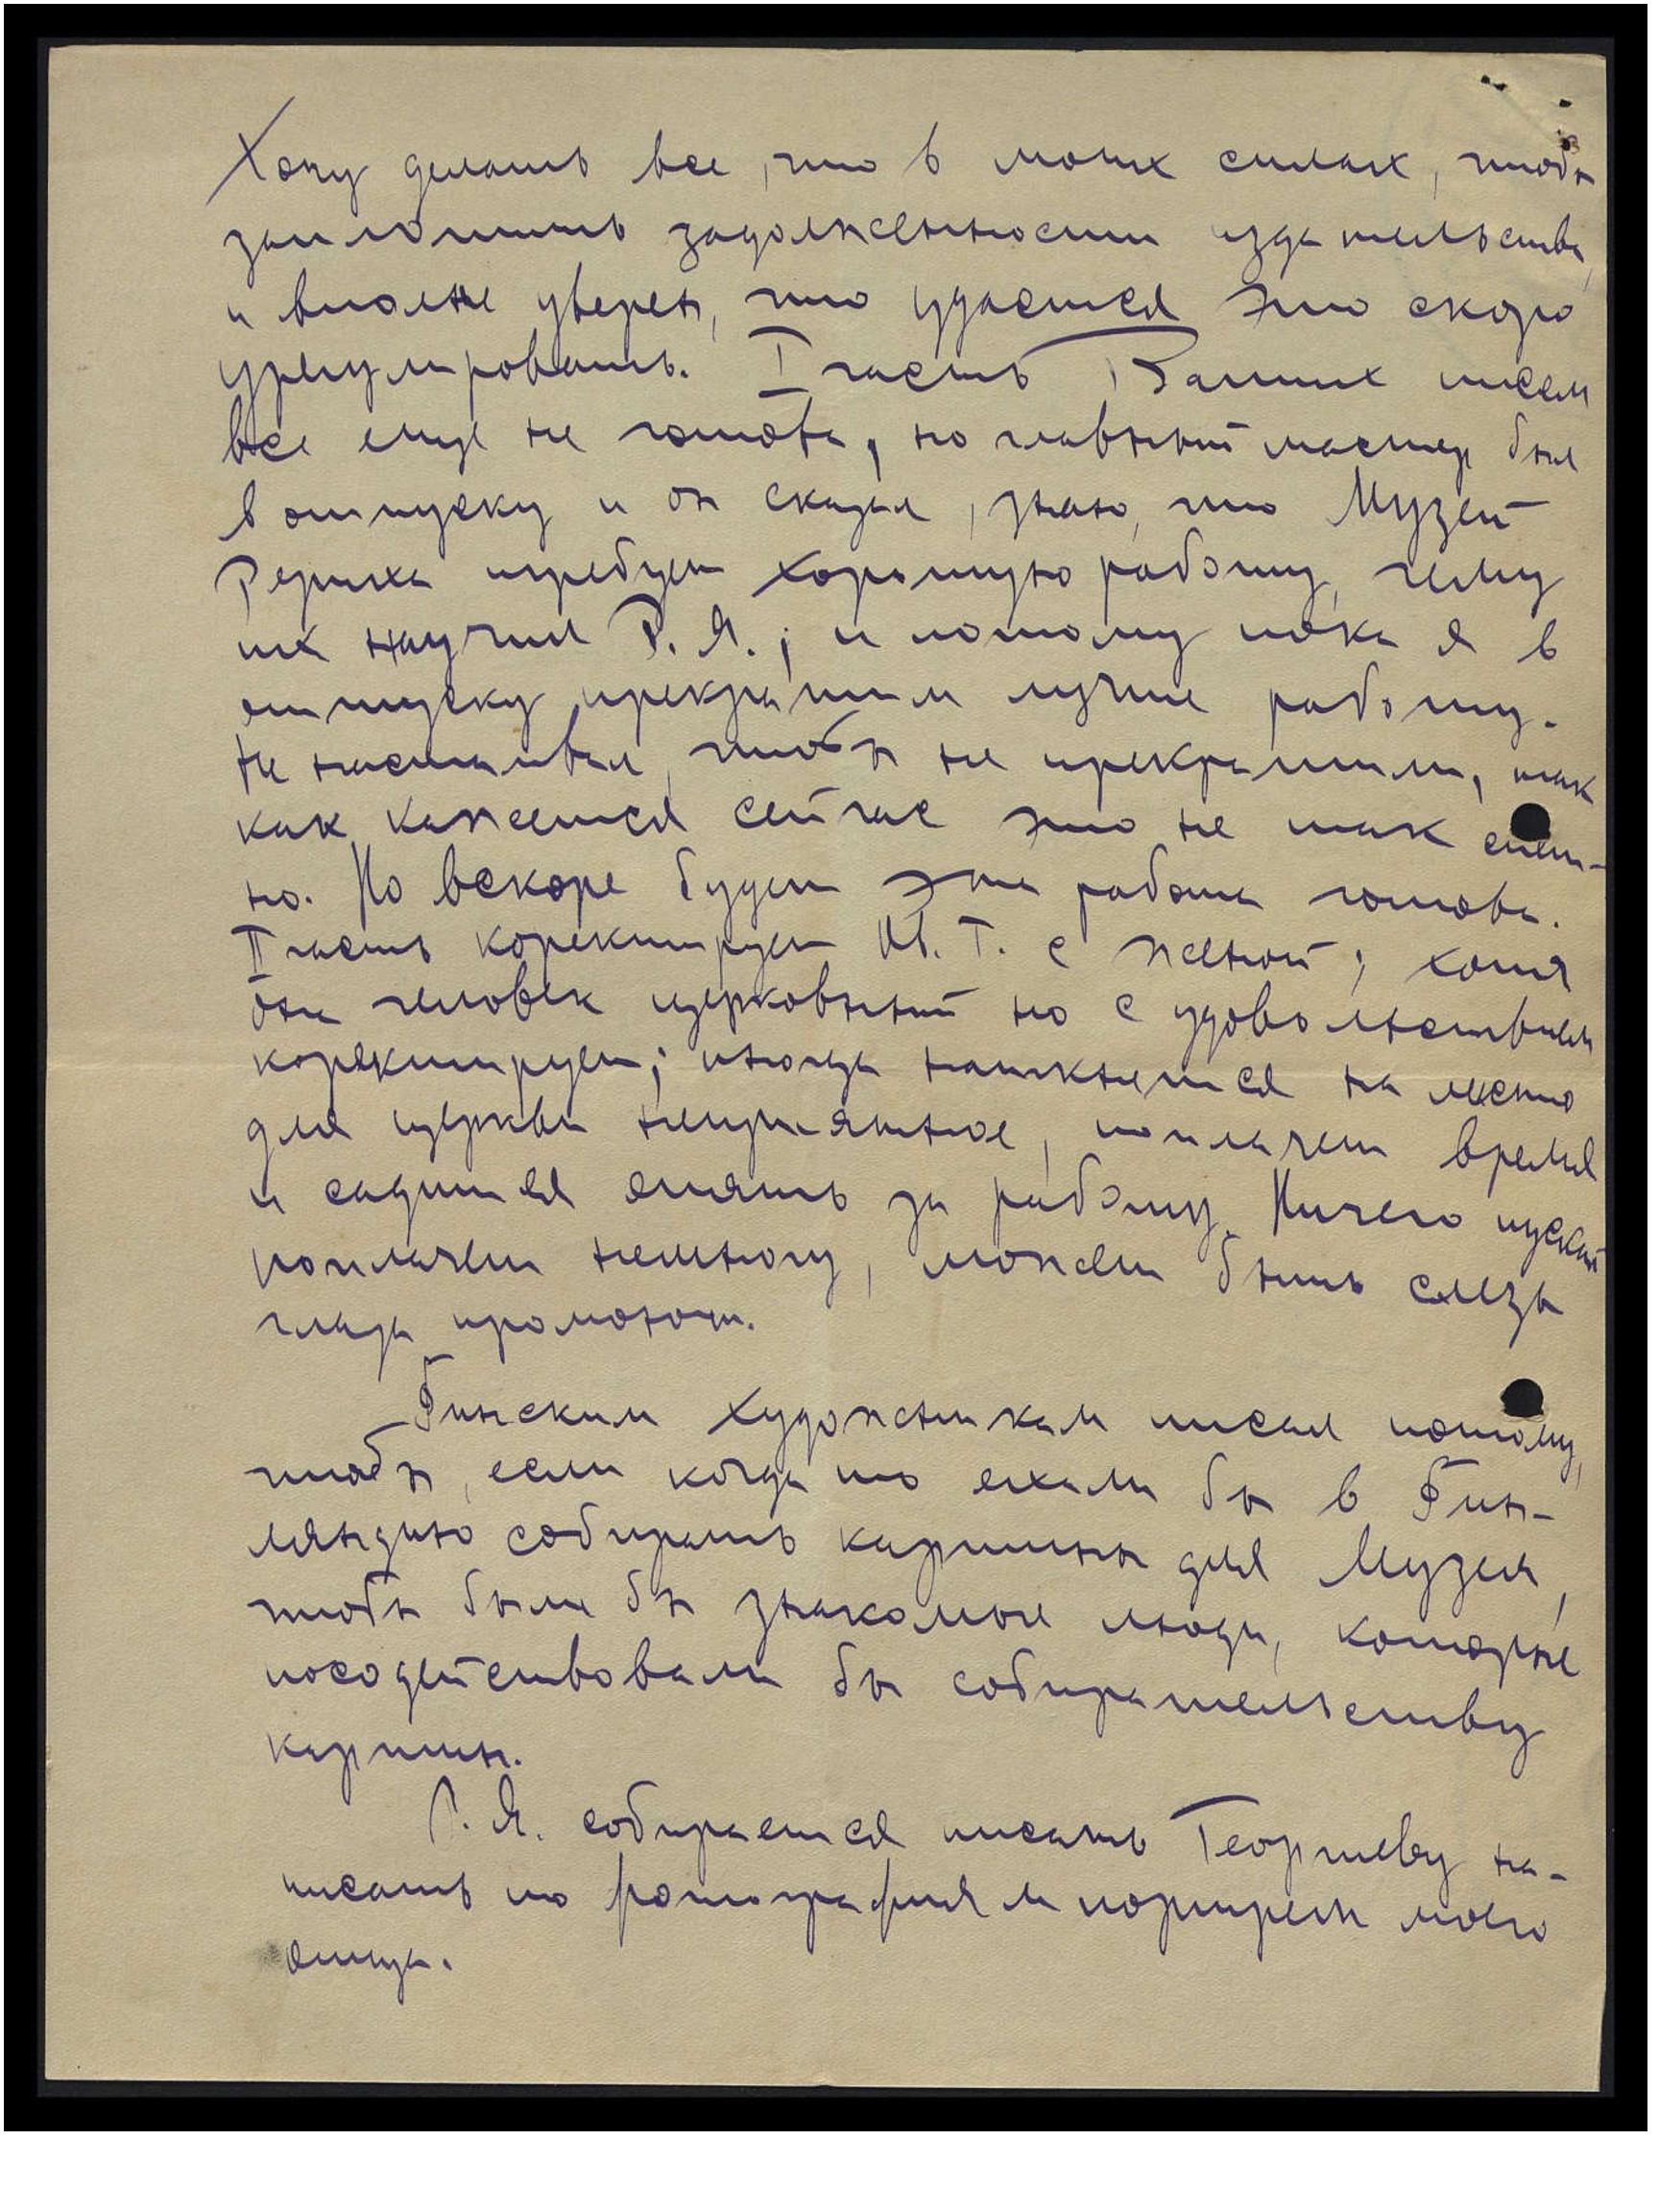 Хочу делать все, что в моих силах, чтобы
заплотить задолженности издательства,
и вполне уверен, что удастся это скоро
урегулировать. I часть Ваших писем
все еще не готова, но главный мастер был
в отпуску и он сказал, знаю, что Музей
Рериха требует хорошую работу, чему
их научил Р. Я.; и потому пока я в
отпуску прекратим лучше работу.
Не настаивал, чтобы не прекратили, так
как кажется сейчас это не так спеш-
но. Но вскоре будет эта работа готова.
II часть коректирует М. Т. с женой; хотя
она человек церковный но с удовольствием
коректирует; иногда наткнется на место
для церкви неприятное, поплачет время
и садится опять за работу. Ничего пускай
поплачет немного, может быть слезы
глаза промоют.
Финским художникам писал потому,
чтобы, если когда то ехали бы в Фин-
ляндию собирать картины для Музея,
чтобы были бы знакомые люди, которые
посодействовали бы собирательству
картин.
Р. Я. собирается писать Георгиеву на-
писать по фотографиям портрет моего
отца.